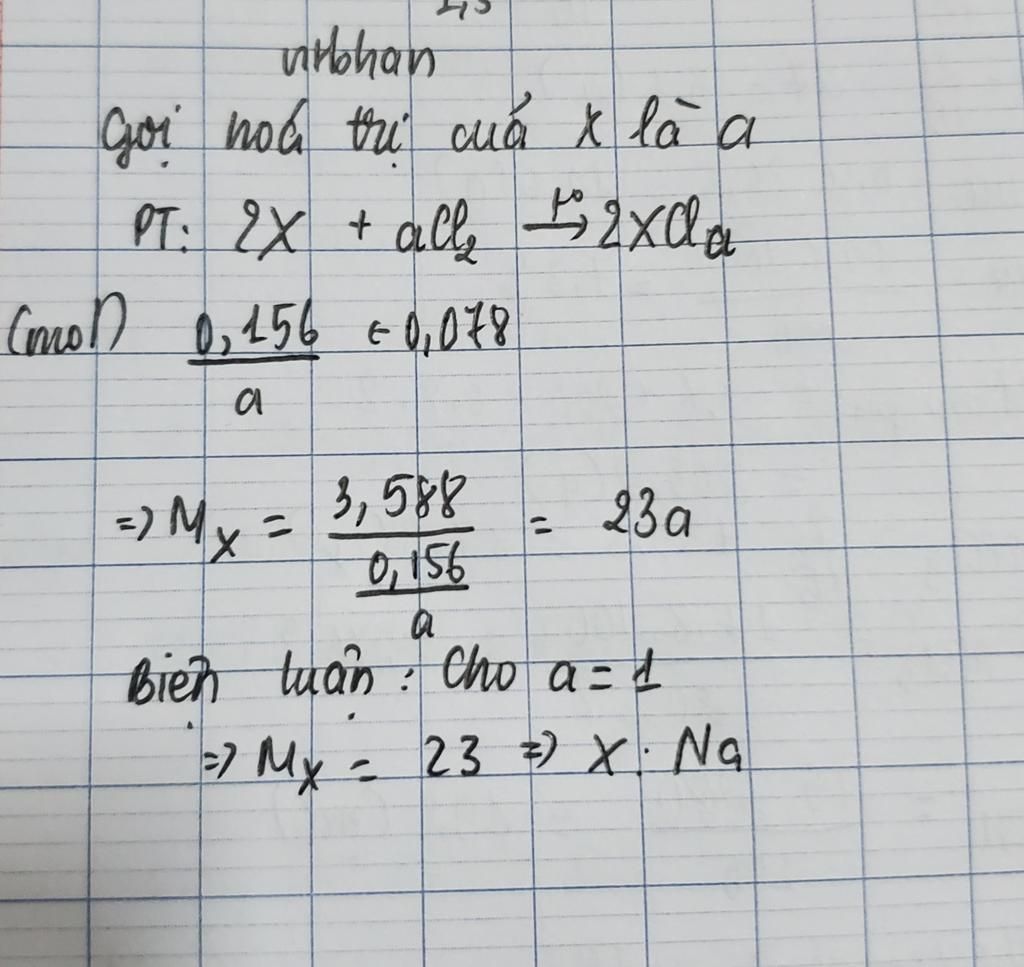 Gọi hoá trị của X là a
PT: 2X + aCl₂ →t° 2XClₐ
(mol) 0,156/a ← 0,078
=> Mₓ = 3,588/(0,156/a) = 23a
Biện luận : Cho a = 1
=> Mₓ = 23 => X : Na